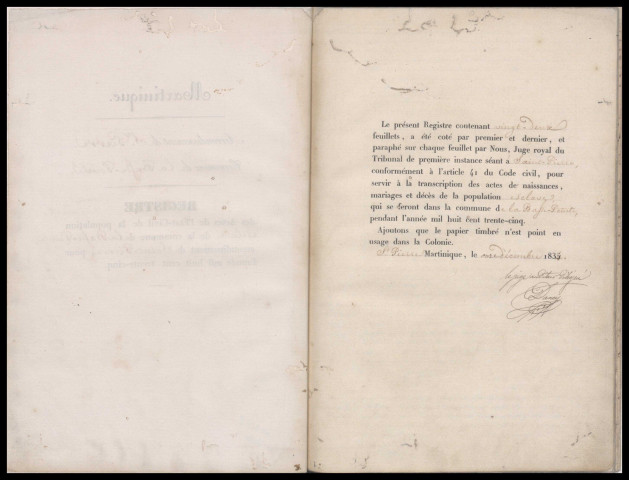 Martinique.
REGISTRE
Le présent Registre contenant vingt-deux
feuillets, a été coté par premier et dernier, et
paraphé sur chaque feuillet par Nous, Juge royal du
Tribunal de première instance séant à Saint Pierre,
conformément à l'article 41 du Code civil, pour
servir à la transcription des actes de naissances,
mariages et décès de la population esclave,
qui se feront dans la commune de la Basse Pointe,
pendant l'année mil huit cent trente-cinq.
Ajoutons que le papier timbré n'est point en
usage dans la Colonie.
St Pierre Martinique, le Décembre 183